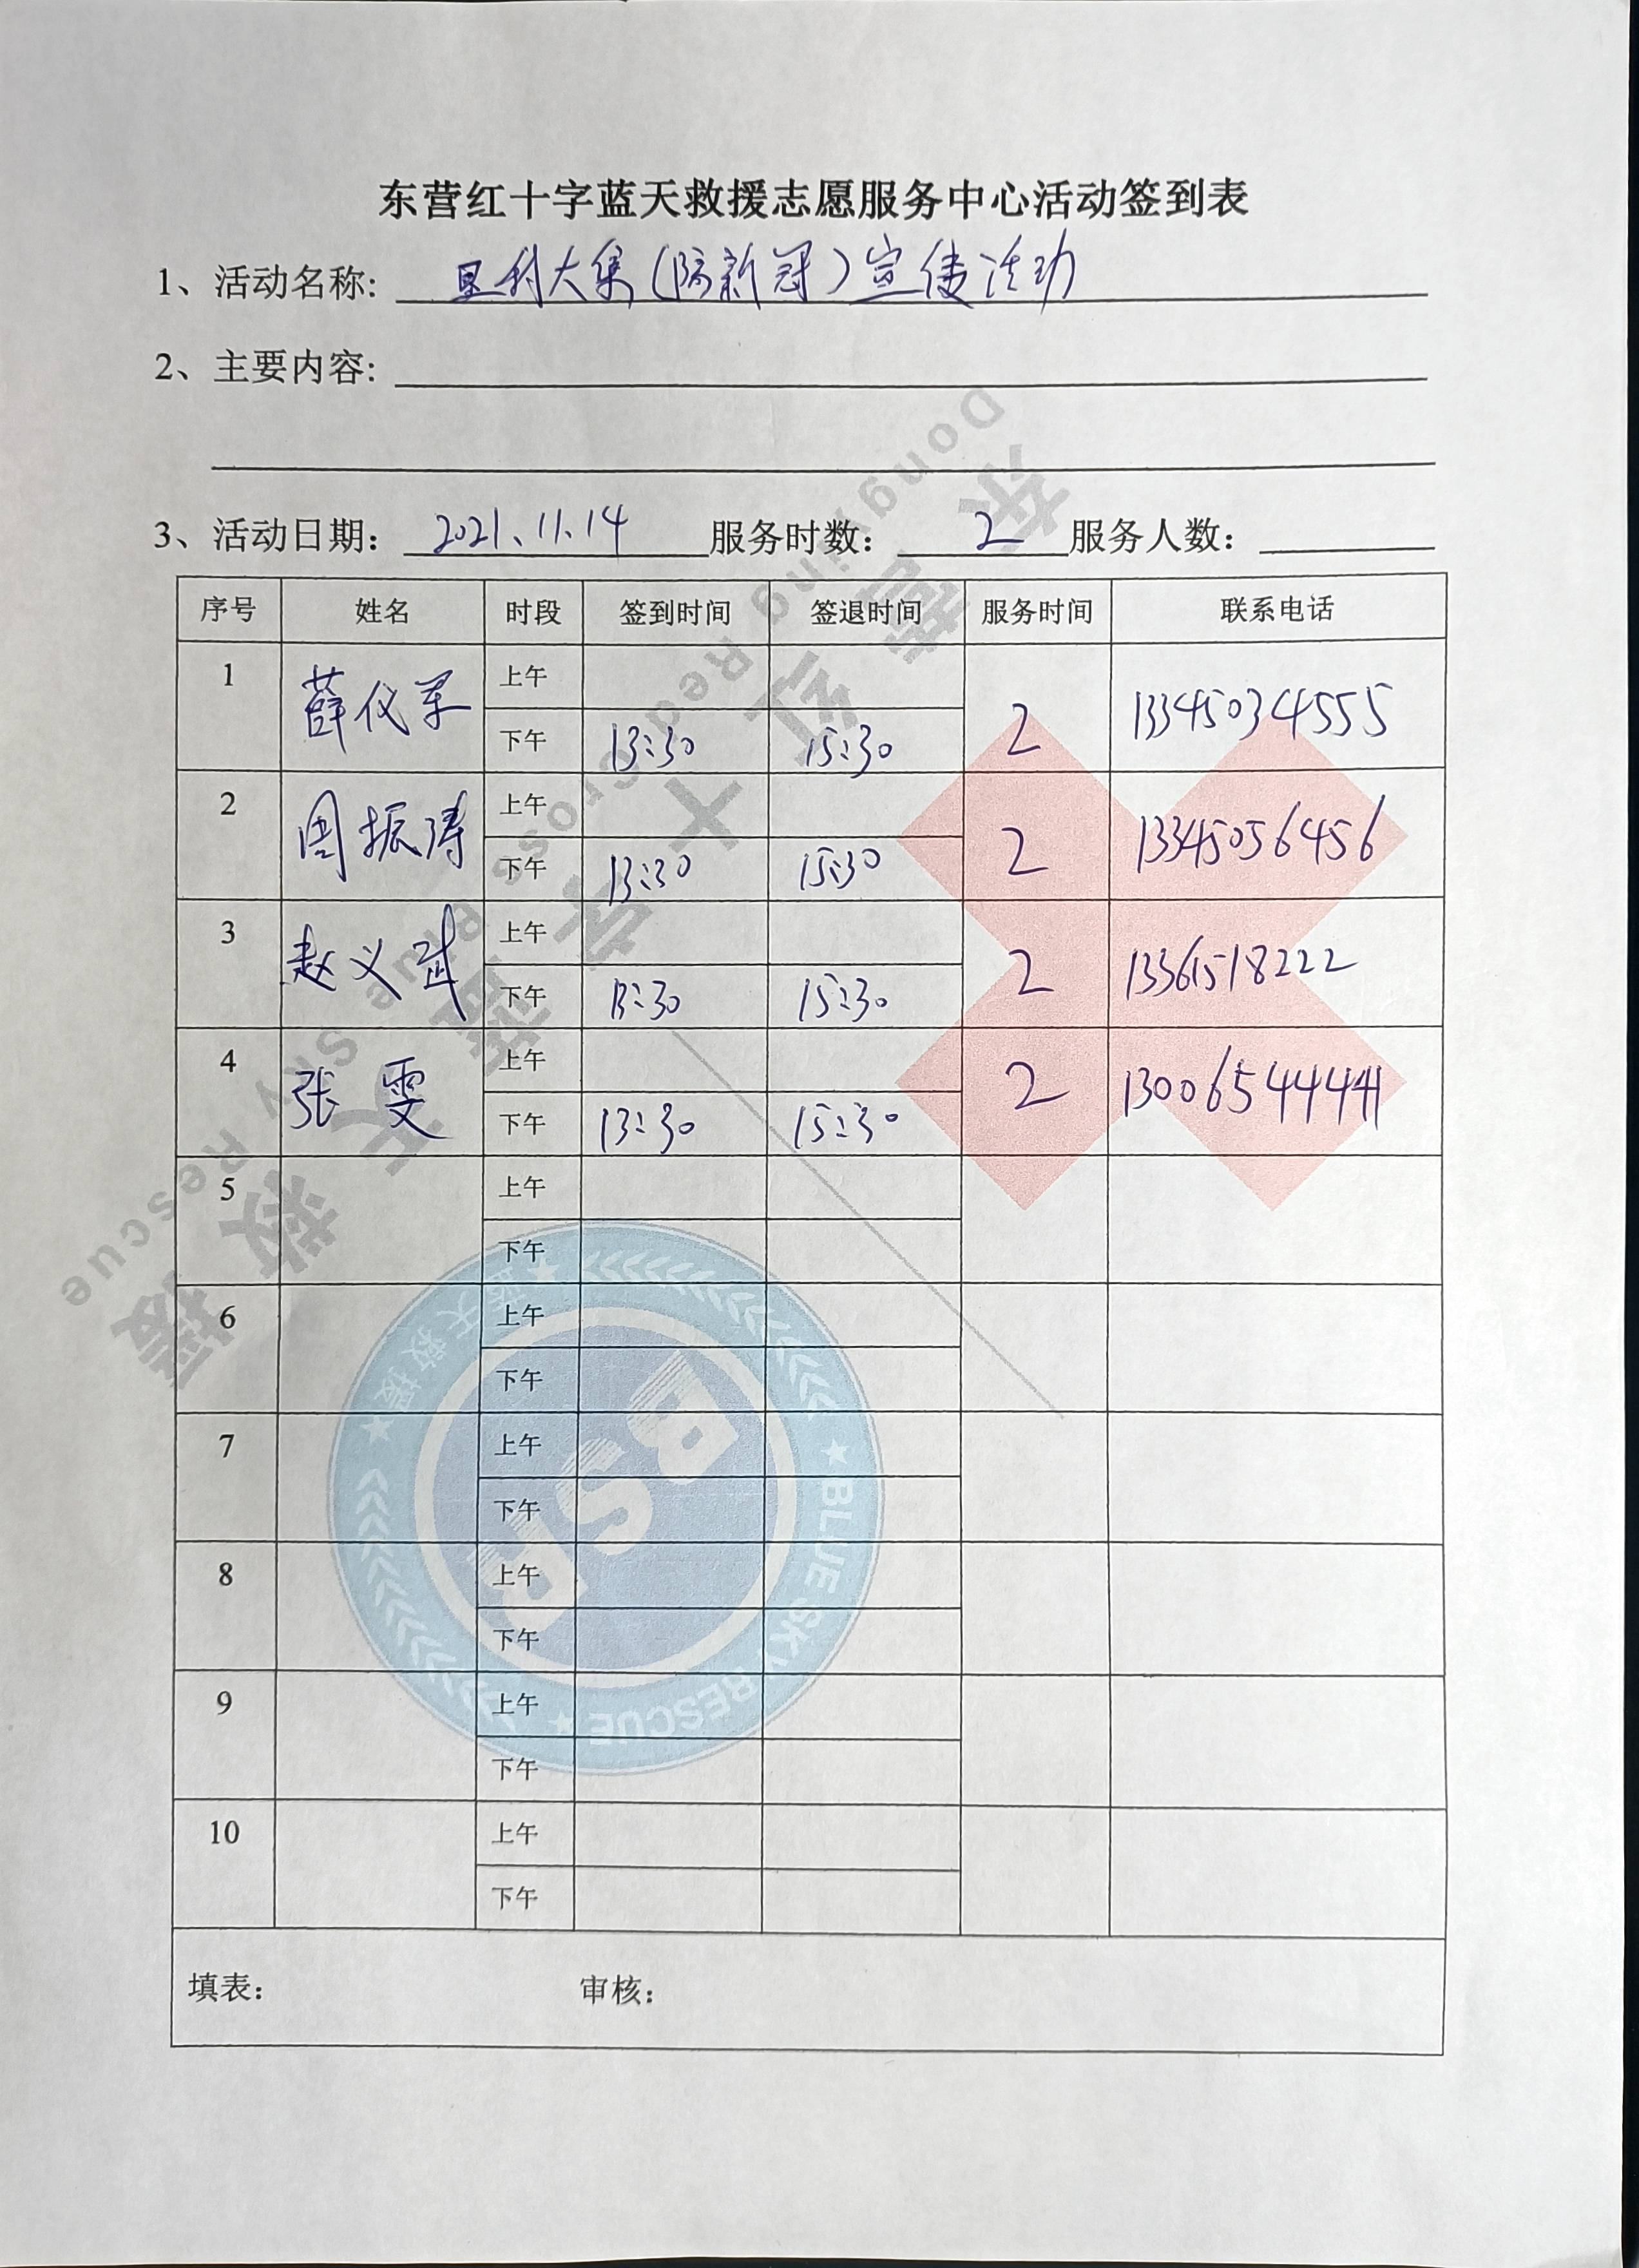 东营红十字蓝天救援志愿服务中心活动签到表
1、活动名称: 垦利大集(防新冠)宣传活动
2、主要内容:
3、活动日期: 2021、11.14 服务时数: 2 服务人数:
序号 姓名 时段 签到时间 签退时间 服务时间 联系电话
1 薛仪军 上午
下午 13:30 15:30 2 13345034555
2 周振涛 上午
下午 13:30 15:30 2 13345056456
3 赵义武 上午
下午 13:30 15:30 2 13361518222
4 张雯 上午
下午 13:30 15:30 2 13006544444
5 上午
下午
6 上午
下午
7 上午
下午
8 上午
下午
9 上午
下午
10 上午
下午
填表: 审核:
东营红十字蓝天救援
Dongying Red Cross Blue Sky Rescue
蓝天救援
BSR
BLUE SKY RESCUE